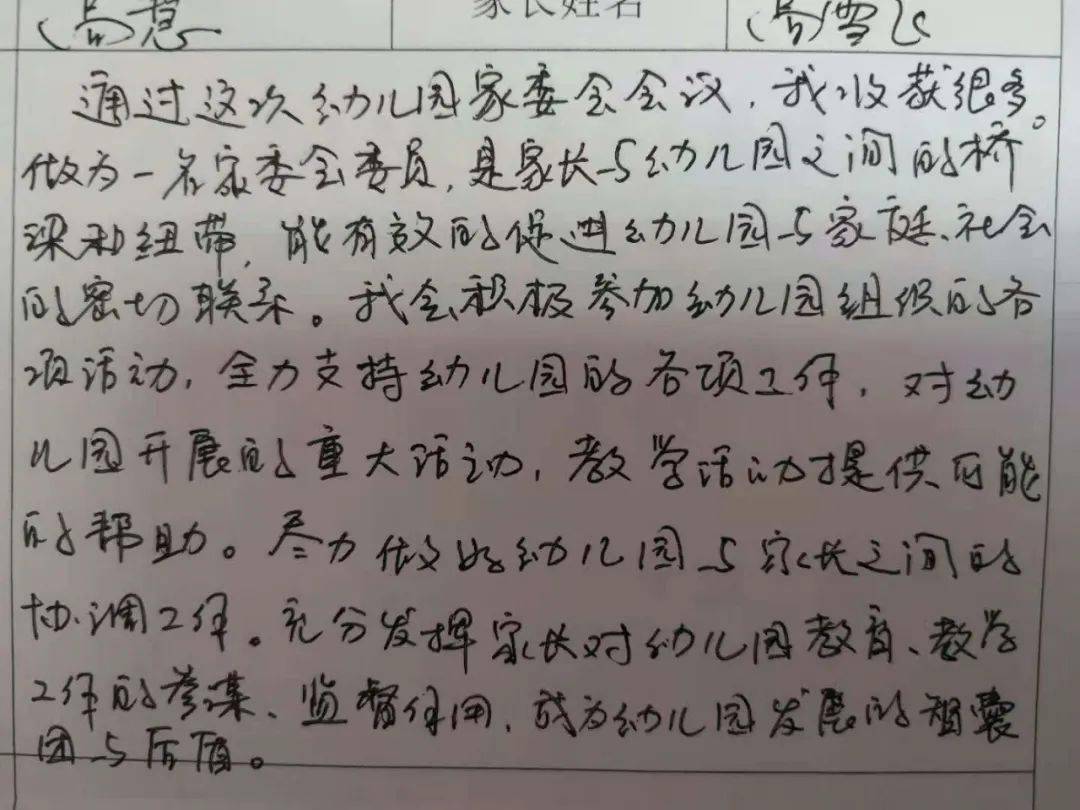 高慧 家长姓名 高雪飞
通过这次幼儿园家委会会议，我收获很多。
做为一名家委会委员，是家长与幼儿园之间的桥
梁和纽带，能有效的促进幼儿园与家庭、社会
的密切联系。我会积极参加幼儿园组织的各
项活动，全力支持幼儿园的各项工作，对幼
儿园开展的重大活动，教学活动提供可能
的帮助。尽力做好幼儿园与家长之间的
协调工作。充分发挥家长对幼儿园教育、教学
工作的参谋、监督作用，成为幼儿园发展的智囊
团与后盾。